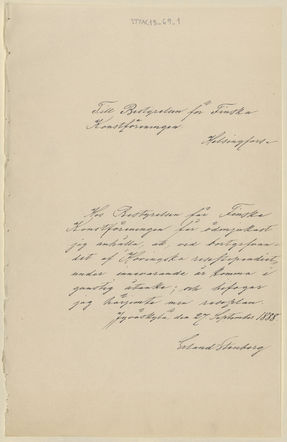 Till Bestyrelsen för Finska
Konstföreningen
Helsingfors
Hos Bestyrelsen för Finska
Konstföreningen får ödmjukast
jag anhålla, att vid bortgifvan-
det af Hovingska resestipendiet
under innevarande år komma i
gunstig åtanke; och bifogar
jag härjemte min reseplan.
Jyväskylä den 27 September 1888.
Erland Stenberg